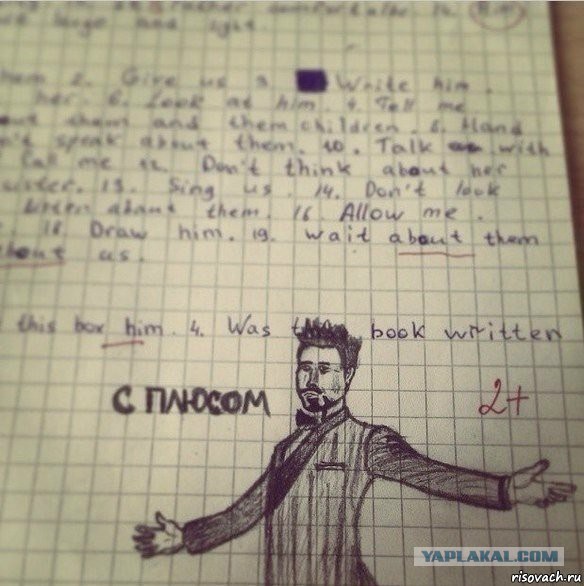 huge and light.
2. Give us 3. Write him.
her. 6. Look at him. 7. Tell me
them and them children. 8. Hand
speak about them. 10. Talk with
Call me 12. Don't think about her
sister. 13. Sing us. 14. Don't look
about them. 16. Allow me.
18. Draw him. 19. wait about them
about us.
this box him. 4. Was book written
с плюсом
2+
YAPLAKAL.COM
risovach.ru